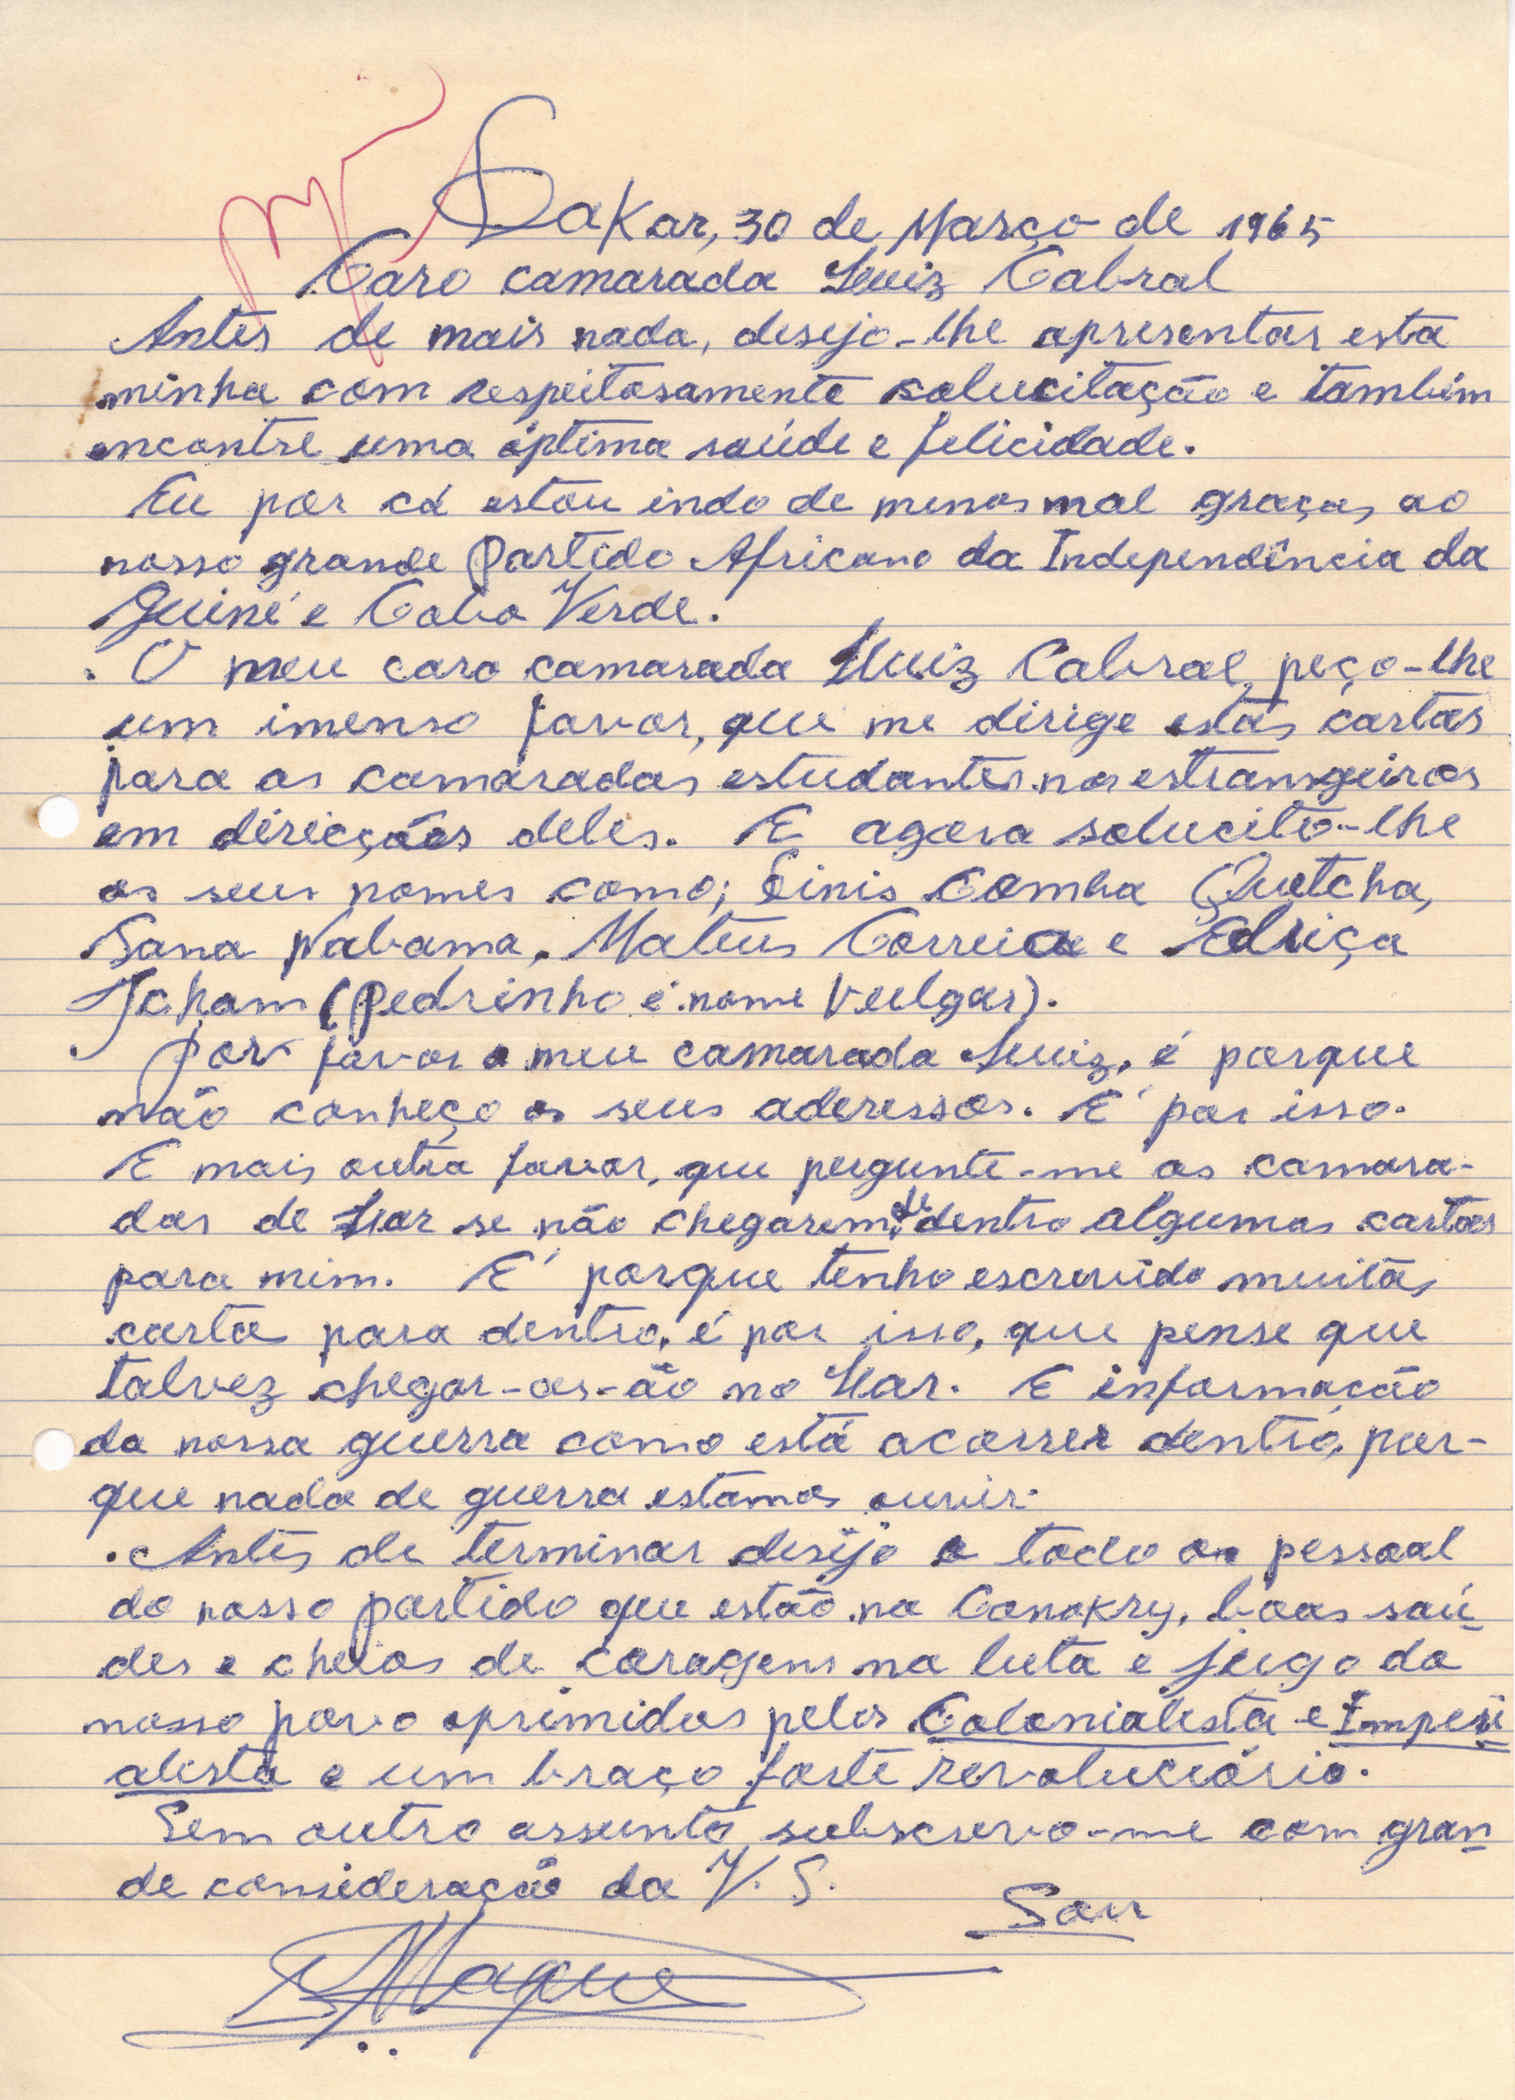 Dakar, 30 de Março de 1965
Caro camarada Luiz Cabral
Antes de mais nada, desejo-lhe apresentar esta
minha com respeitosamente solucitação e também
encontre uma óptima saúde e felicidade.
Eu por cá estou indo de menos mal graças ao
nosso grande Partido Africano da Independência da
Guiné e Cabo Verde.
. O meu caro camarada Luiz Cabral, peço-lhe
um imenso favor, que me dirige estas cartas
para os camaradas estudantes nos estrangeiros
em direcções deles. E agora solucito-lhe
os seus nomes como; Sinis Comba Quetcha,
Sana Nabama, Mateus Correia e Edriça
Jcham (Pedrinho é nome vulgar).
. Por favor o meu camarada Luiz, é porque
não conheço os seus aderessos. É por isso.
E mais outra favor, que pergunte-me os camara-
das de Lar se não chegarem de dentro algumas cartas
para mim. É porque tenho escrevido muitas
cartas para dentro, é por isso, que pense que
talvez chegar-os-ão no Lar. E informação
da nossa guerra como está acorrer dentro, por-
que nada de guerra estamos ouvir.
. Antes de terminar desejo a todo os pessoal
do nosso partido que estão na Conakry, boas saú-
des e cheios de coragens na luta e jugo do
nosso povo oprimidos pelos Colonialista e Imperi
alista e um braço forte revoluciório.
Sem outro assunto subscrevo-me com gran
de consideração da V. S.
Sou
Maque